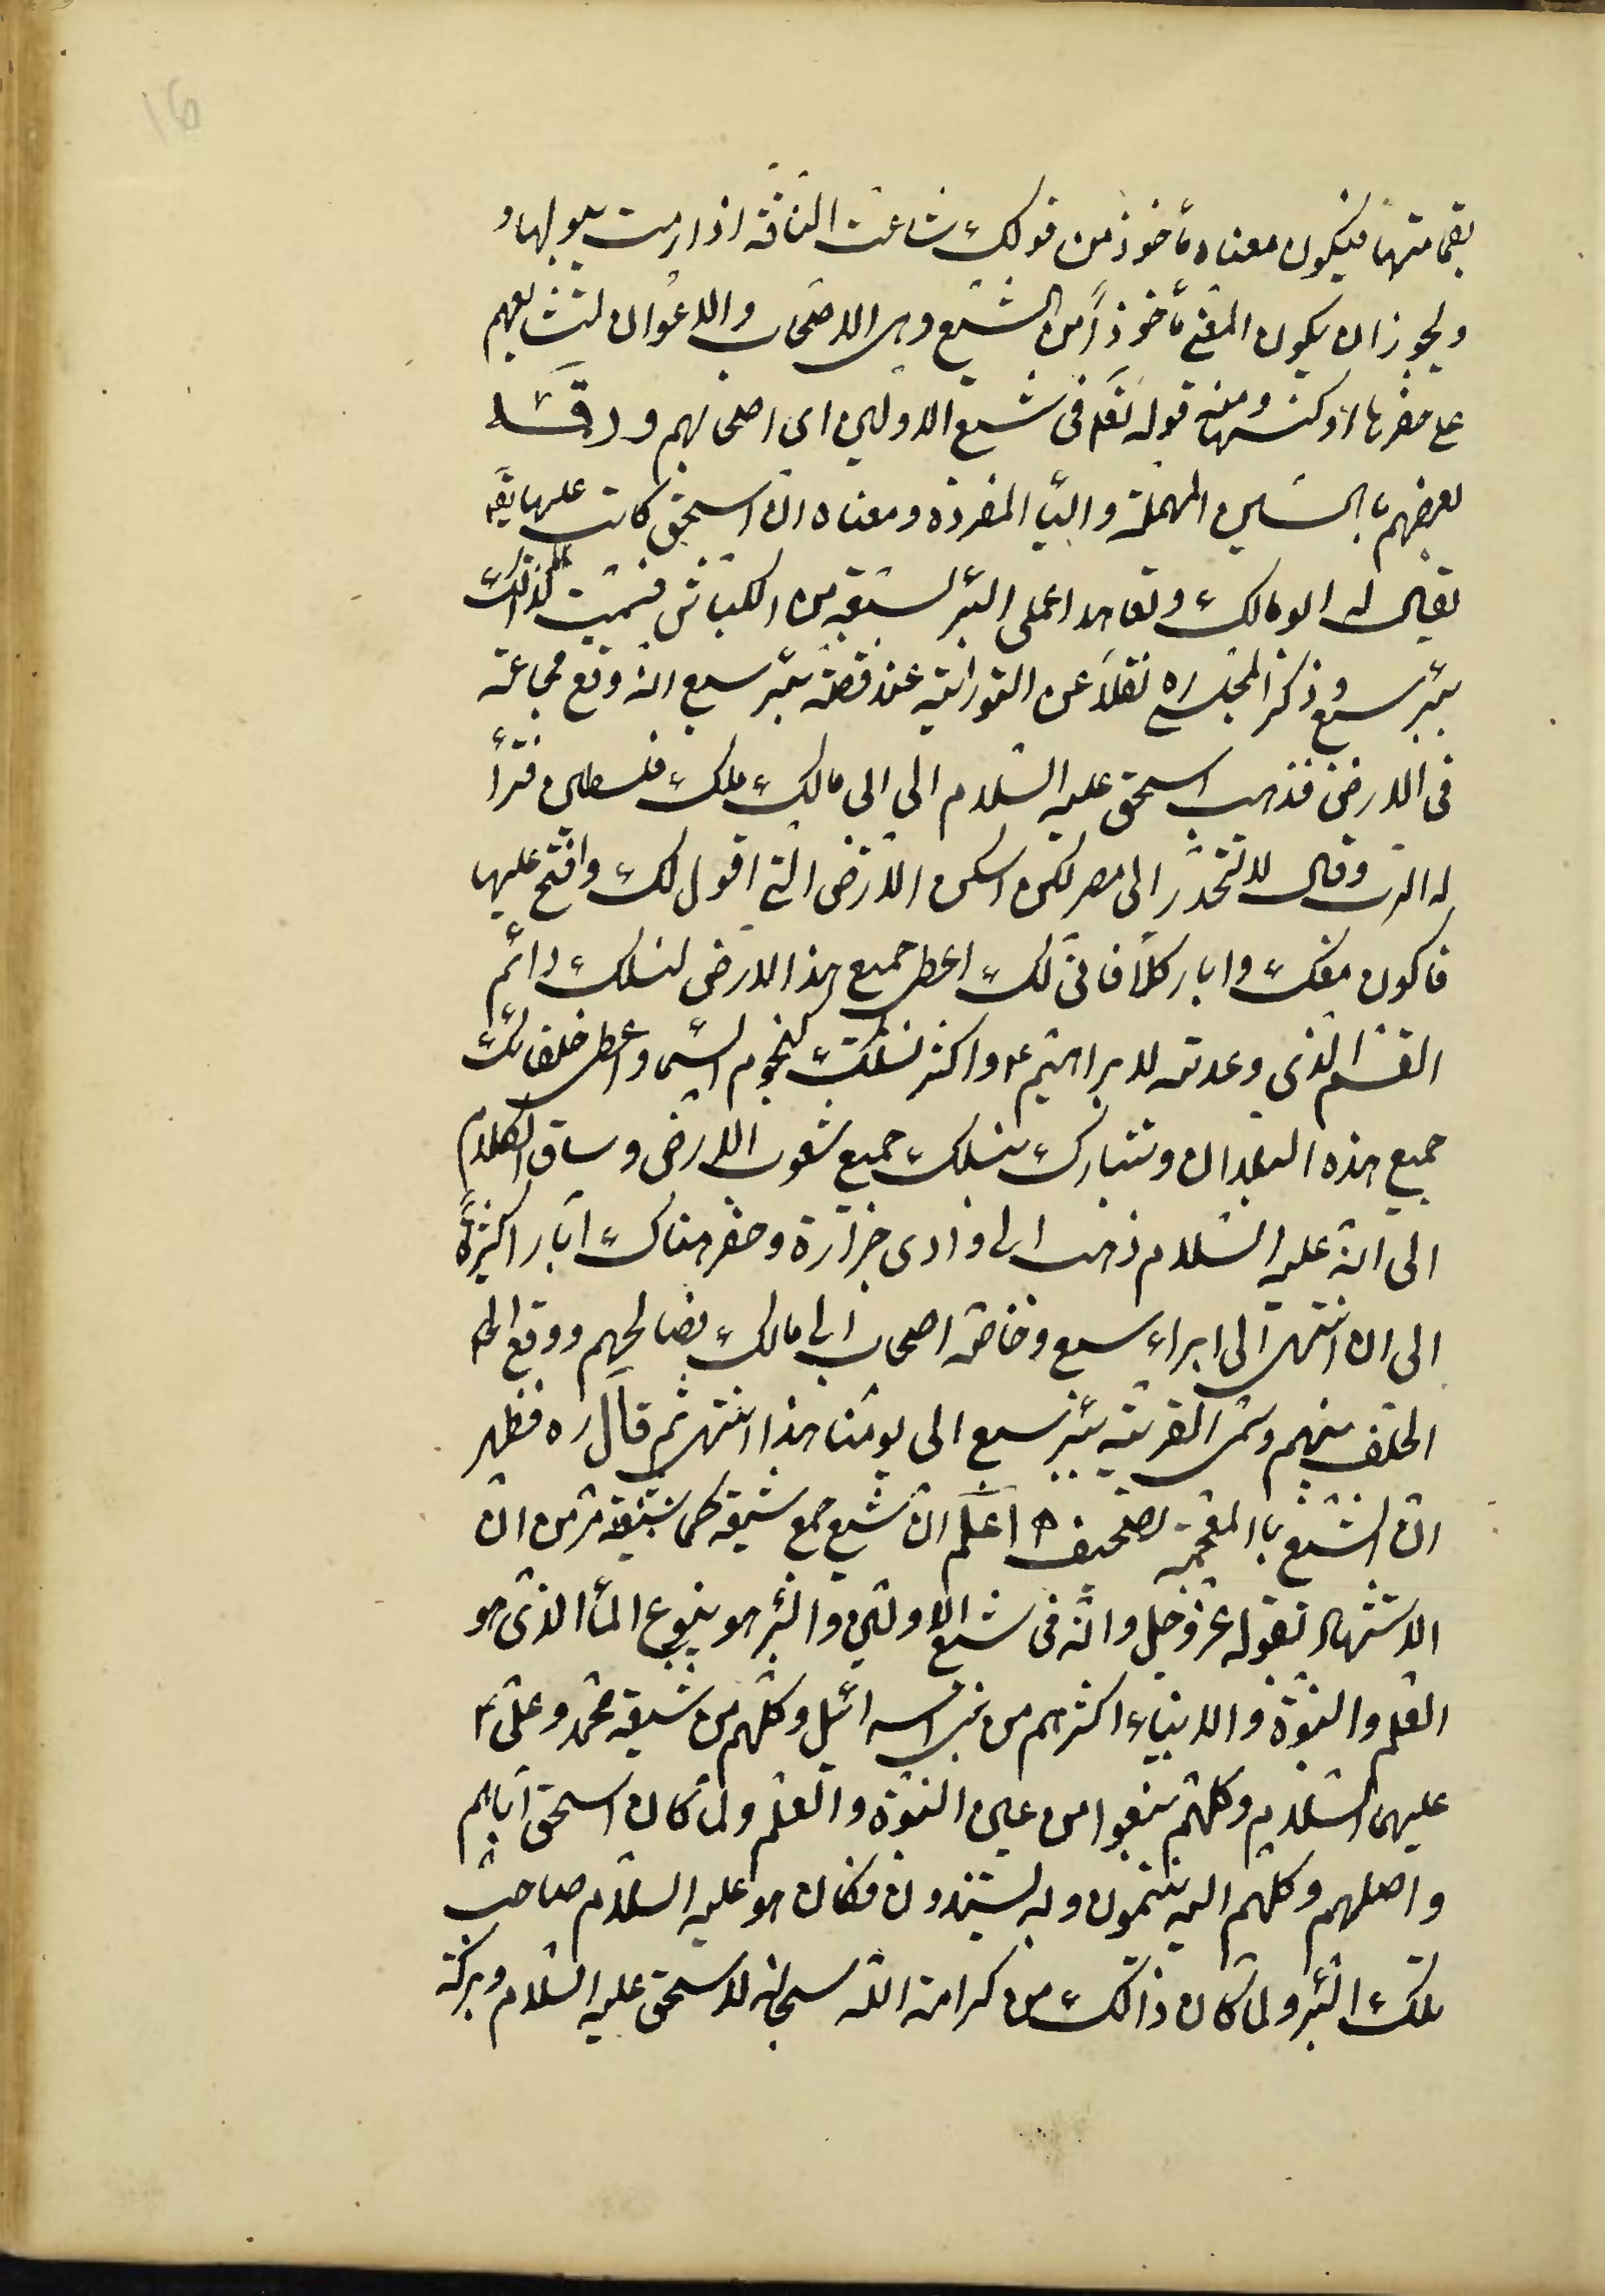 بقمامتها فيكون معناه مأخوذ من قولك شاعت الناقة اذا رمت ببولها و
ويجوز ان يكون المعنى مأخوذاً من الشيع وهى الاصحاب والاعوان لتشايعهم
على حفرها او كنسها ومنه قوله تعالى فى شيع الاولين اى اصحابهم ورقـه
بعضهم بالسين المهملة والباء المفردة ومعناه ان اسحق كانت عليها بقه
يقال له ابو مالك وتعاهدا على البئر لسبعة من الكباش فسميت لذلك
بئر سبع وذكر المجلسى ره نقلاً عن التورية عند قصة بئر سبع انه وقع مجاعة
فى الارض فذهب اسحق عليه السلام الى ابى مالك ملك فلسطين فترأ
له الرب وقال لا تنحدر الى مصر لكن اسكن الارض التى اقول لك وافتح عليها
فاكون معك واباركك فانى لك اعطى جميع هذا الارض لنسلك دائم
القسم الذى وعدته لابراهيم ع واكثر نسلك كنجوم السماء واعطى خلفائك
جميع هذه البلدان وتتبارك بنسلك جميع شعوب الارض وساق الكلام
الى انه عليه السلام ذهب الى وادى جزارة وحفر هناك آبار اكثيرة
الى ان انتهى الى ابراء سبع وخاصمه اصحاب ابى مالك فصالحهم ووقع
الحلف بينهم وسمى القرية بئر سبع الى يومنا هذا انتهى ثم قال ره فظهر
ان الشيع بالمعجمة تصحيف اعلم ان شيع جمع شيعة كما سبقه مر من ان
الاستشهاد بقوله عز وجل وانه فى شيع الاولين والبئر هو ينبوع الماء الذى هو
العلم والنبوة والانبياء اكثرهم من بنى اسرائيل وكلهم من شيعة محمد وعلى ع
عليهما السلام وكلهم نبعوا من عين النبوة والعلم ولما كان اسحق اباهم
واصلهم وكلهم اليه ينتمون وبه يستندون فكان هو عليه السلام صاحب
ملك البئر ولما كان ذالك من كرامة الله سبحانه لاسحق عليه السلام وبركة